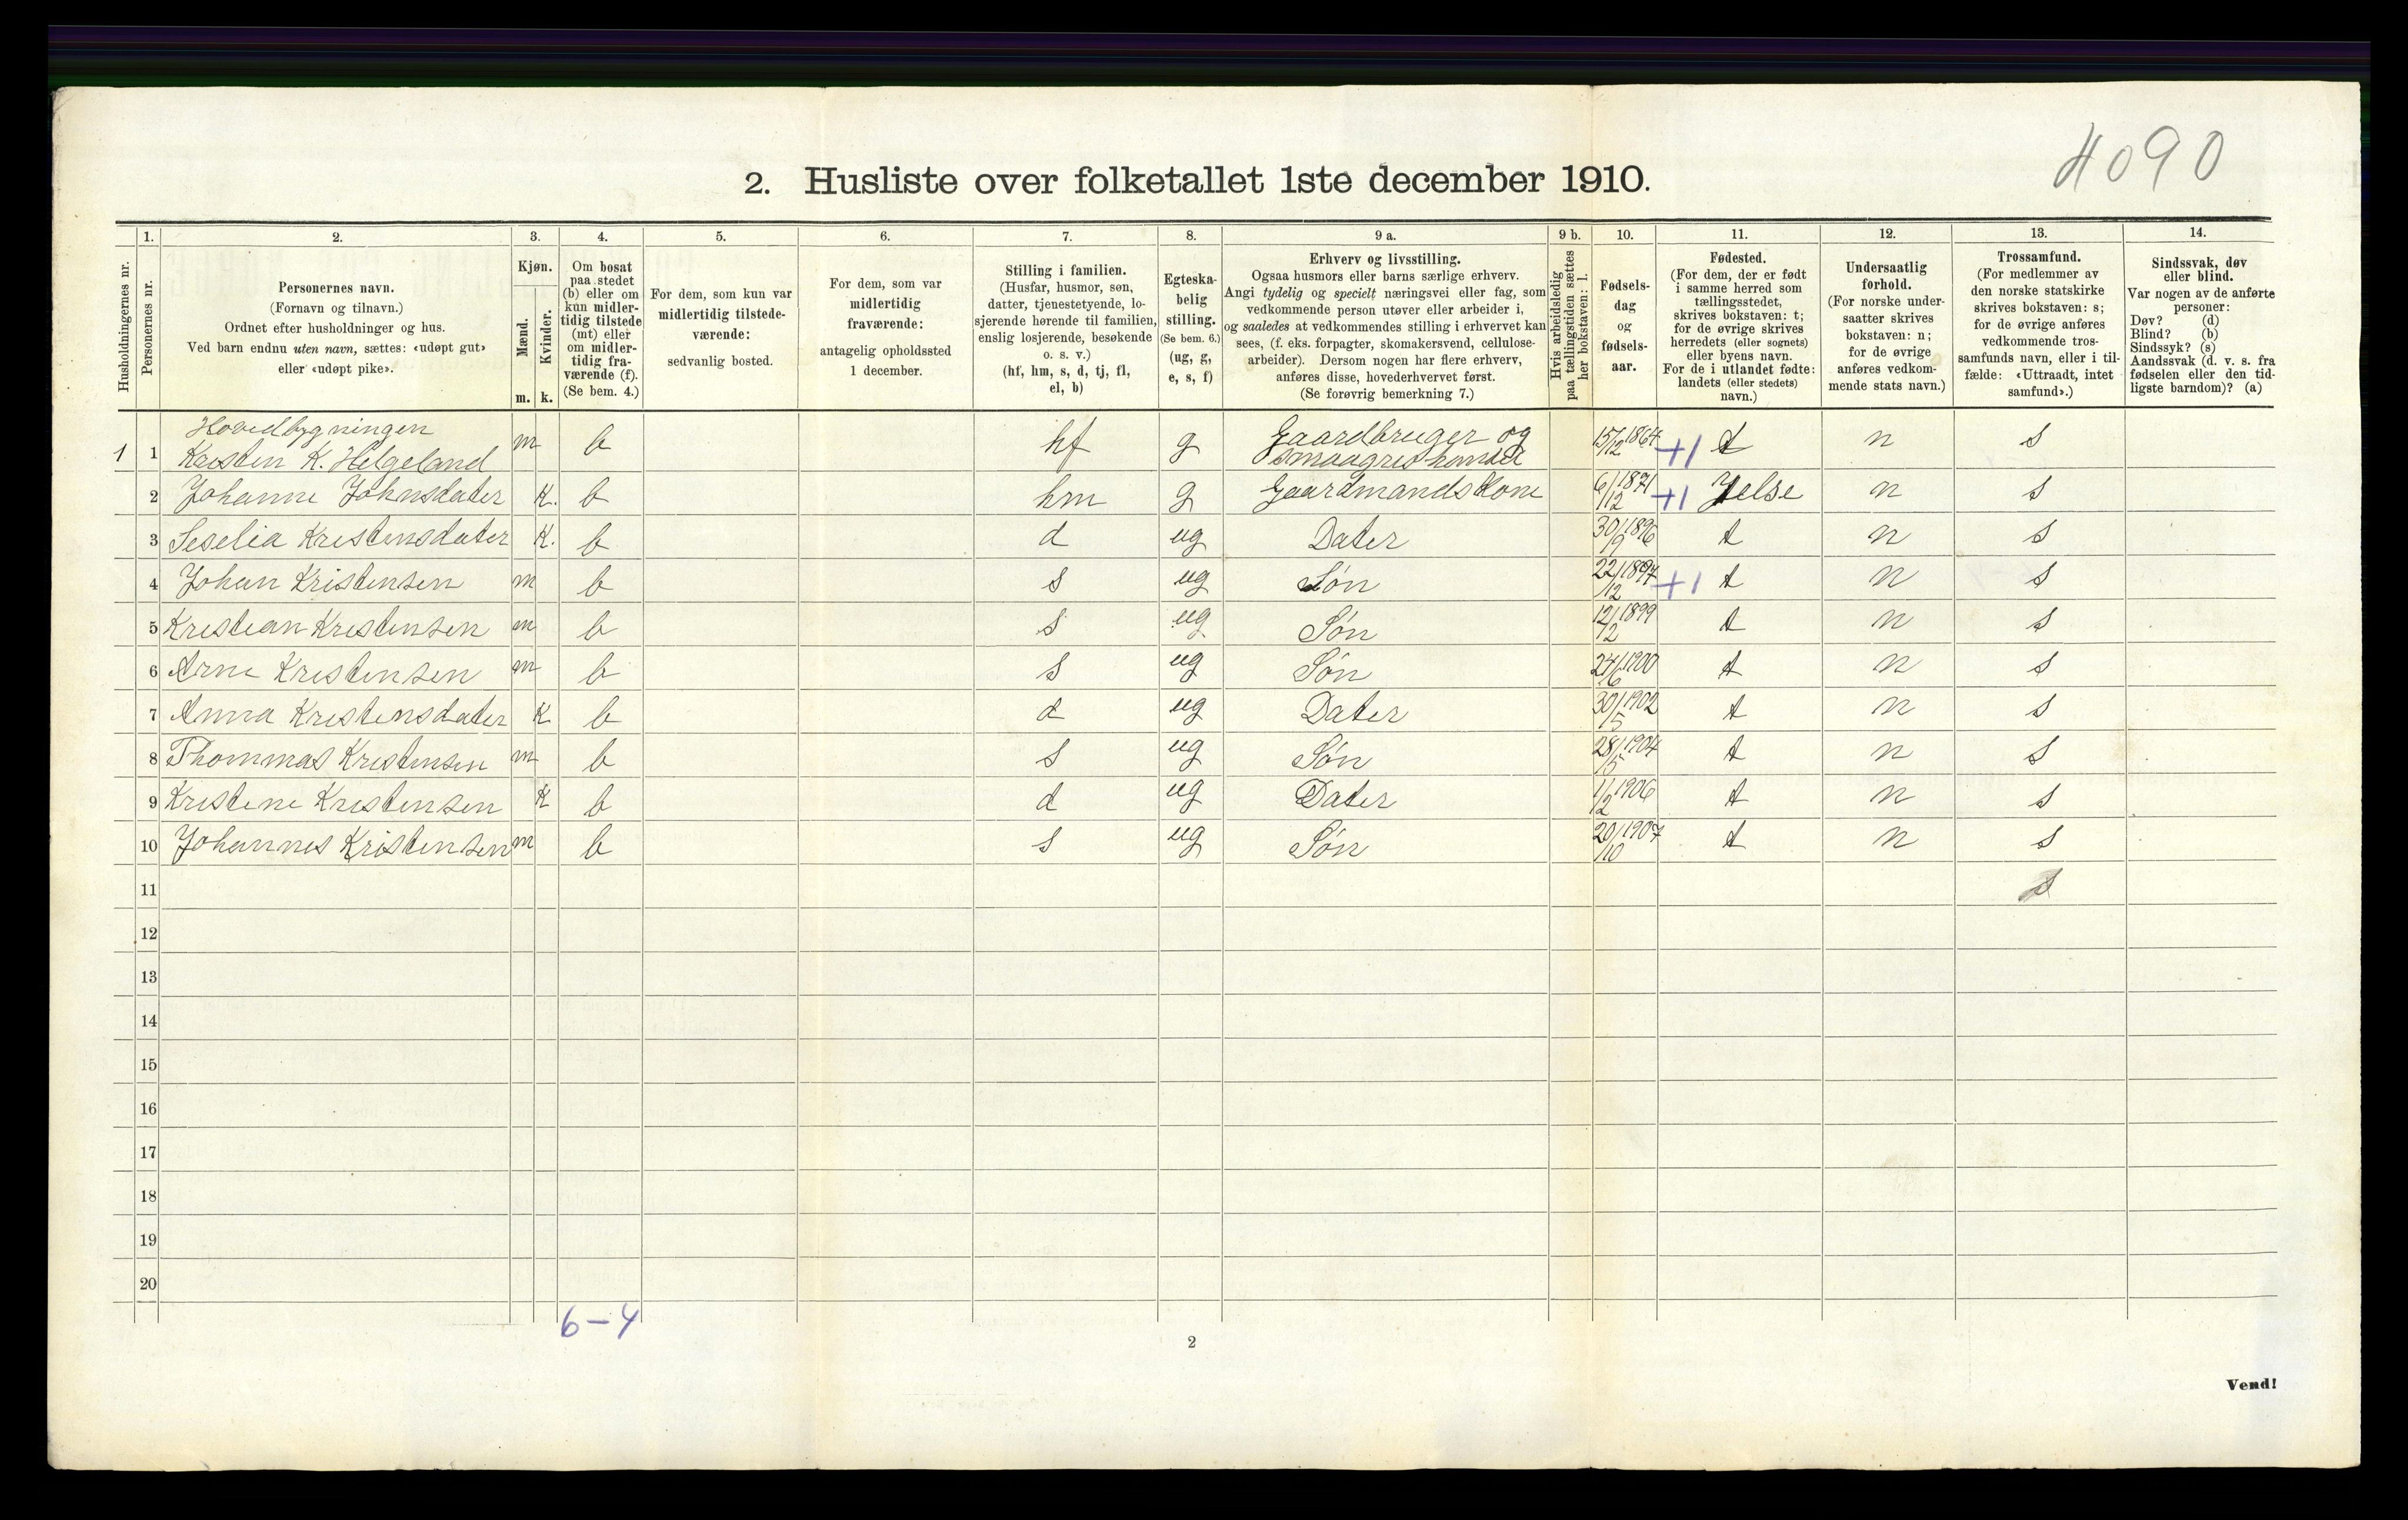 4090
2. Husliste over folketallet 1ste december 1910.
Husholdningernes nr.
1.
Personernes nr.
2.
Personernes navn.
(Fornavn og tilnavn.)
Ordnet efter husholdninger og hus.
Ved barn endnu uten navn, sættes: «udøpt gut»
eller «udøpt pike».
3.
Kjøn.
Mænd.
Kvinder.
m. k.
4.
Om bosat
paa stedet
(b) eller om
kun midler-
tidig tilstede
(mt) eller
om midler-
tidig fra-
værende (f).
(Se bem. 4.)
5.
For dem, som kun var
midlertidig tilstede-
værende:
sedvanlig bosted.
6.
For dem, som var
midlertidig
fraværende:
antagelig opholdssted
1 december.
7.
Stilling i familien.
(Husfar, husmor, søn,
datter, tjenestetyende, lo-
sjerende hørende til familien,
enslig losjerende, besøkende
o. s. v.)
(hf, hm, s, d, tj, fl,
el, b)
8.
Egteska-
belig
stilling.
(Se bem. 6.)
(ug, g,
e, s, f)
9 a.
Erhverv og livsstilling.
Ogsaa husmors eller barns særlige erhverv.
Angi tydelig og specielt næringsvei eller fag, som
vedkommende person utøver eller arbeider i,
og saaledes at vedkommendes stilling i erhvervet kan
sees, (f. eks. forpagter, skomakersvend, cellulose-
arbeider). Dersom nogen har flere erhverv,
anføres disse, hovederhvervet først.
(Se forøvrig bemerkning 7.)
9 b.
Hvis arbeidsledig
paa tællingstiden sættes
her bokstaven: l.
10.
Fødsels-
dag
og
fødsels-
aar.
11.
Fødested.
(For dem, der er født
i samme herred som
tællingsstedet,
skrives bokstaven: t;
for de øvrige skrives
herredets (eller sognets)
eller byens navn.
For de i utlandet fødte:
landets (eller stedets)
navn.)
12.
Undersaatlig
forhold.
(For norske under-
saatter skrives
bokstaven: n;
for de øvrige
anføres vedkom-
mende stats navn.)
13.
Trossamfund.
(For medlemmer av
den norske statskirke
skrives bokstaven: s;
for de øvrige anføres
vedkommende tros-
samfunds navn, eller i til-
fælde: «Uttraadt, intet
samfund».)
14.
Sindssvak, døv
eller blind.
Var nogen av de anførte
personer:
Døv? (d)
Blind? (b)
Sindssyk? (s)
Aandssvak (d. v. s. fra
fødselen eller den tid-
ligste barndom)? (a)
Hovedbygningen
1 1 Kristen K. Helgeland m b hf g Gaardbruger og smaagreshandel 15/12 1864 +1 t n s
2 Johanne Johnsdater K. b hm g Gaardmandskone 6/12 1871 +1 Jelse n s
3 Seselia Kristensdater K. b d ug Dater 30/9 1896 t n s
4 Johan Kristensen m b s ug Søn 22/12 1897 +1 t n s
5 Kristian Kristensen m b s ug Søn 12/2 1899 t n s
6 Arne Kristensen m b s ug Søn 27/6 1900 t n s
7 Anna Kristensdater K b d ug Dater 30/5 1902 t n s
8 Thommas Kristensen m b s ug Søn 28/5 1904 t n s
9 Kristene Kristensen K b d ug Dater 1/2 1906 t n s
10 Johannes Kristensen m b s ug Søn 20/10 1907 t n s
11 s
12
13
14
15
16
17
18
19
20
6-4
2
Vend!